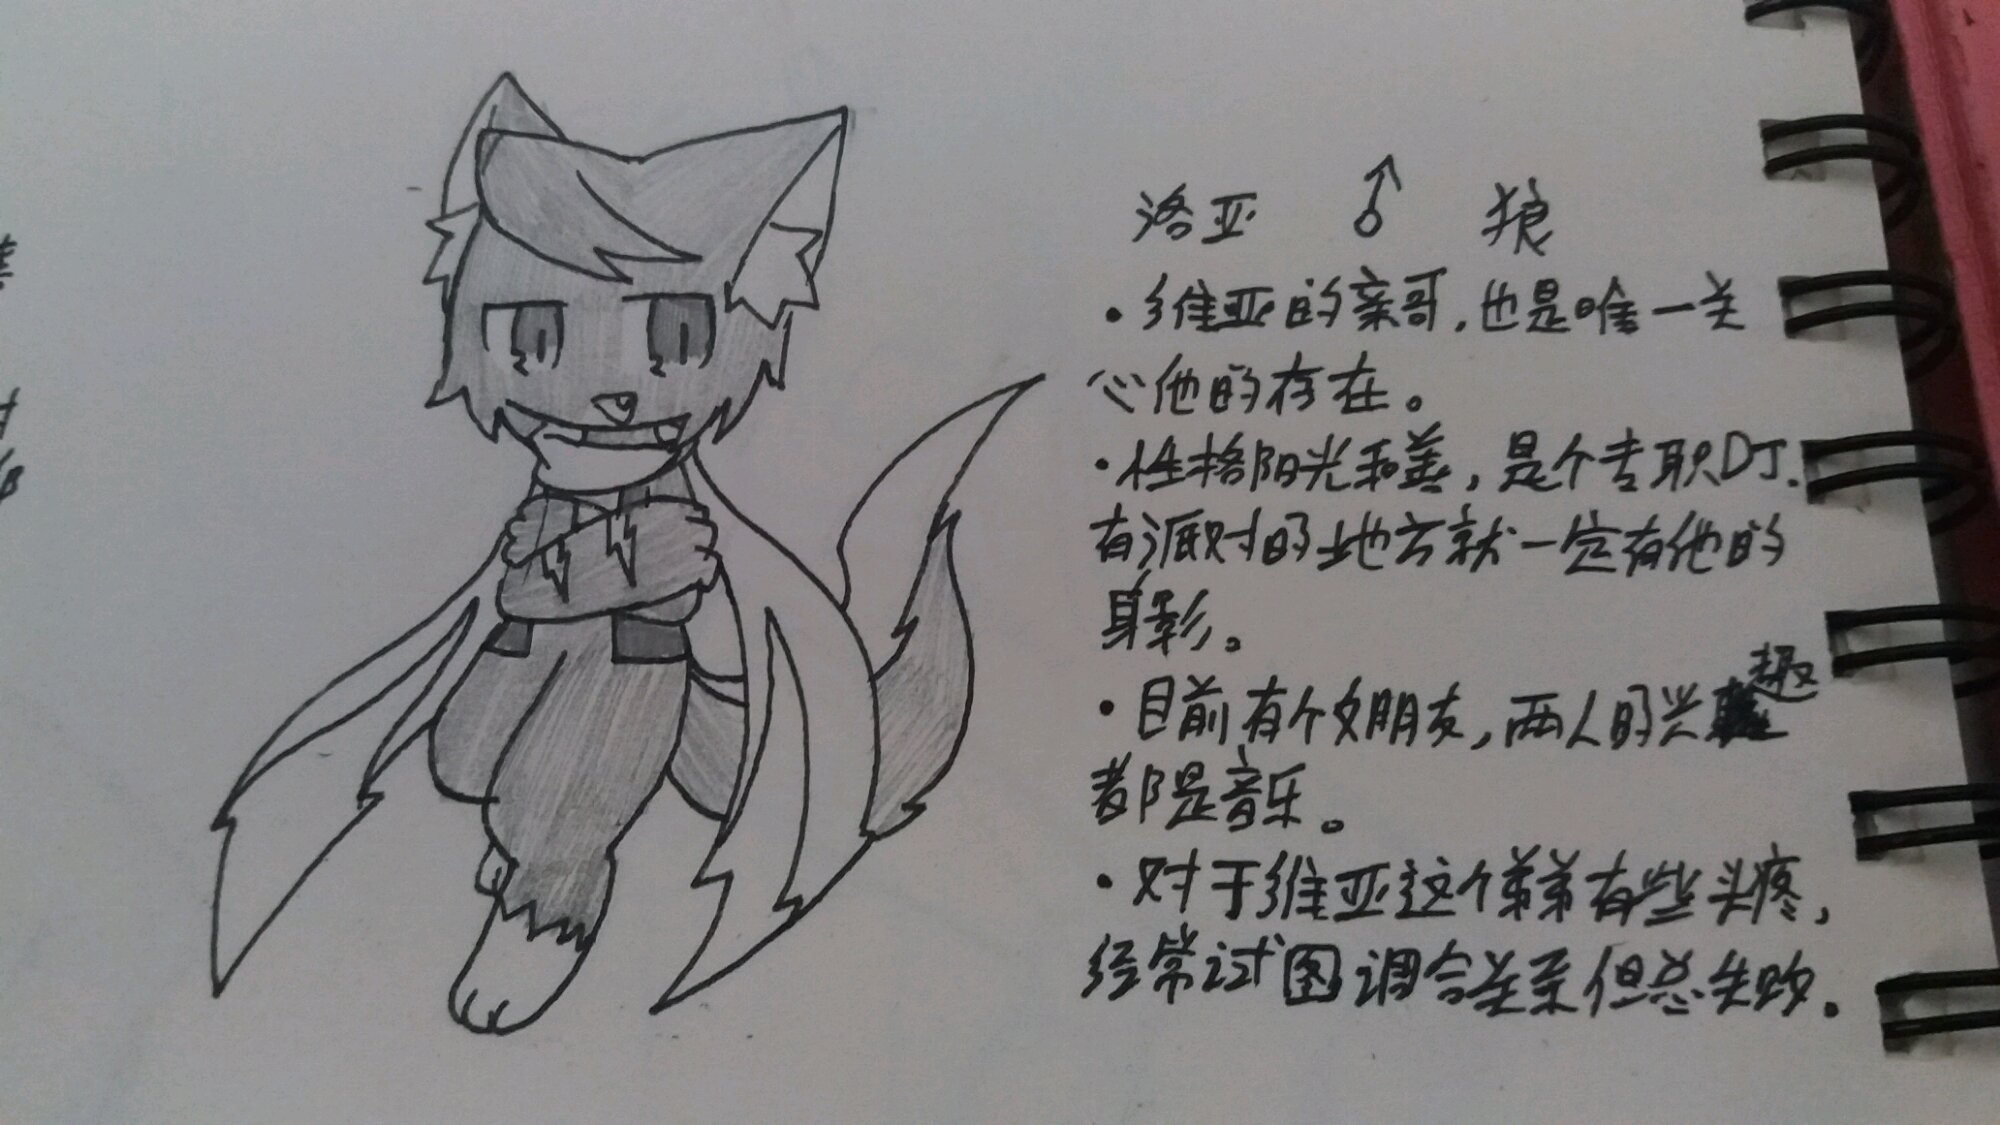 洛亚 ♂ 狼
·维亚的亲哥,也是唯一关
心他的存在。
·性格阳光和善,是个专职DJ.
有派对的地方就一定有他的
身影。
·目前有个女朋友,两人的兴趣
都是音乐。
·对于维亚这个弟弟有些头疼,
经常试图调合关系但总失败。